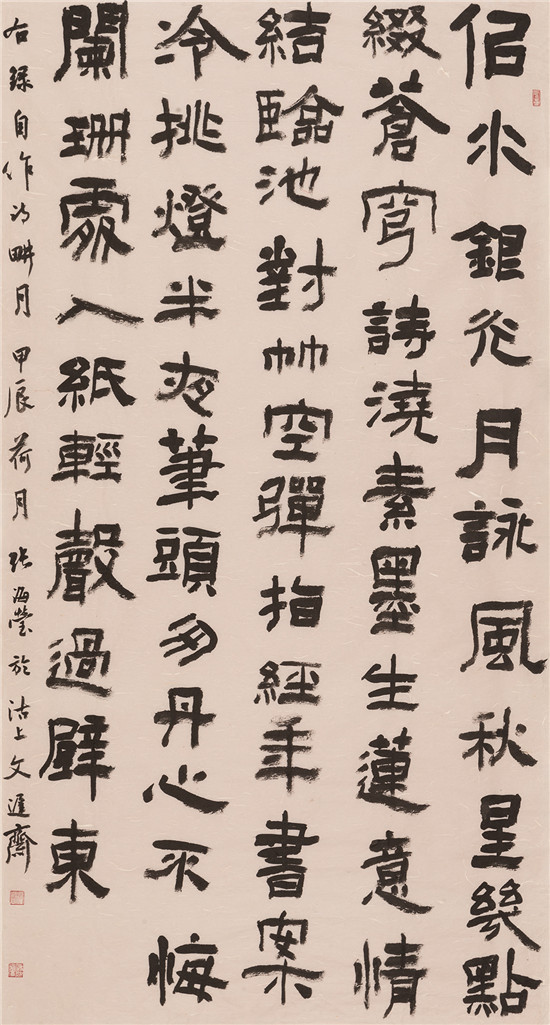 佀水銀光月詠風秋星幾點
綴蒼穹詩澆素墨生蓮意情
結臨池對竹空彈指經年書案
冷挑燈半夜筆頭匆丹心不悔
闌珊處入紙輕聲過壁東
右錄自作畊月 甲辰荷月 張海瑩於沽上文進齋